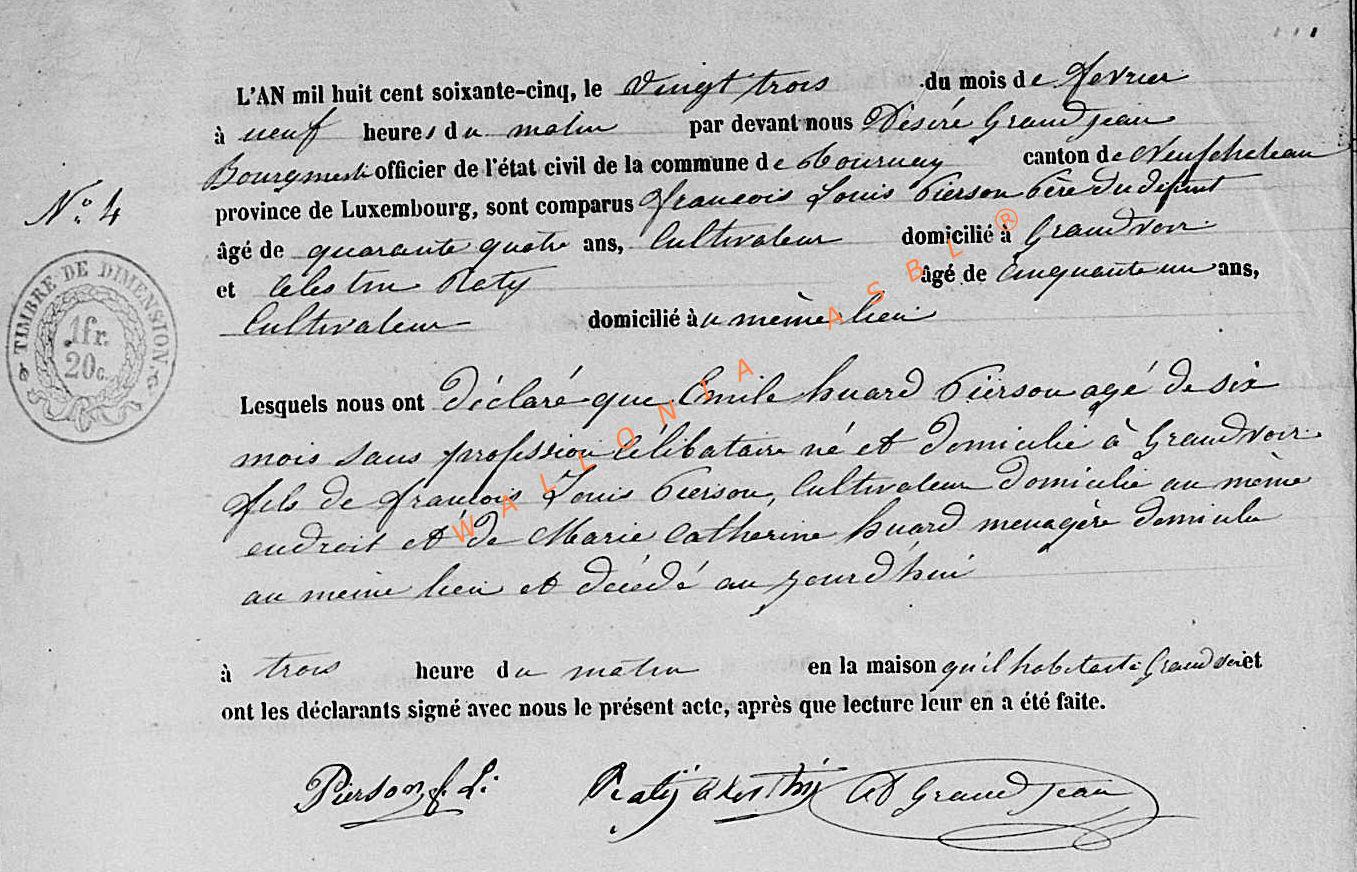 L'AN mil huit cent soixante-cinq, le vingt trois du mois de fevrier
à neuf heures du matin par devant nous Désiré Grandjean
Bourgmestre officier de l'état civil de la commune de Tournay canton de Neufchateau
N° 4
province de Luxembourg, sont comparus francois Louis Pierson Père du défunt
âgé de quarante quatre ans, Cultivateur domicilié à Grandvoir
et Celestin Raty âgé de Cinquante un ans,
Cultivateur domicilié au même lieu
TIMBRE DE DIMENSION
1 fr.
20 c.
WALLONIA ASBL ®
Lesquels nous ont Déclaré que Emile huard Pierson agé de six
mois sans profession Célibataire né et domicilié à Grandvoir
fils de francois Louis Pierson, Cultivateur domicilié au même
endroit et de Marie Catherine huard menagère domicilie
au même lieu et décédé au jourd'hui
à trois heure du matin en la maison qu'il habitait à Grandvoir et
ont les déclarants signé avec nous le présent acte, après que lecture leur en a été faite.
Pierson f. L. Raty Celestin AD Grandjean